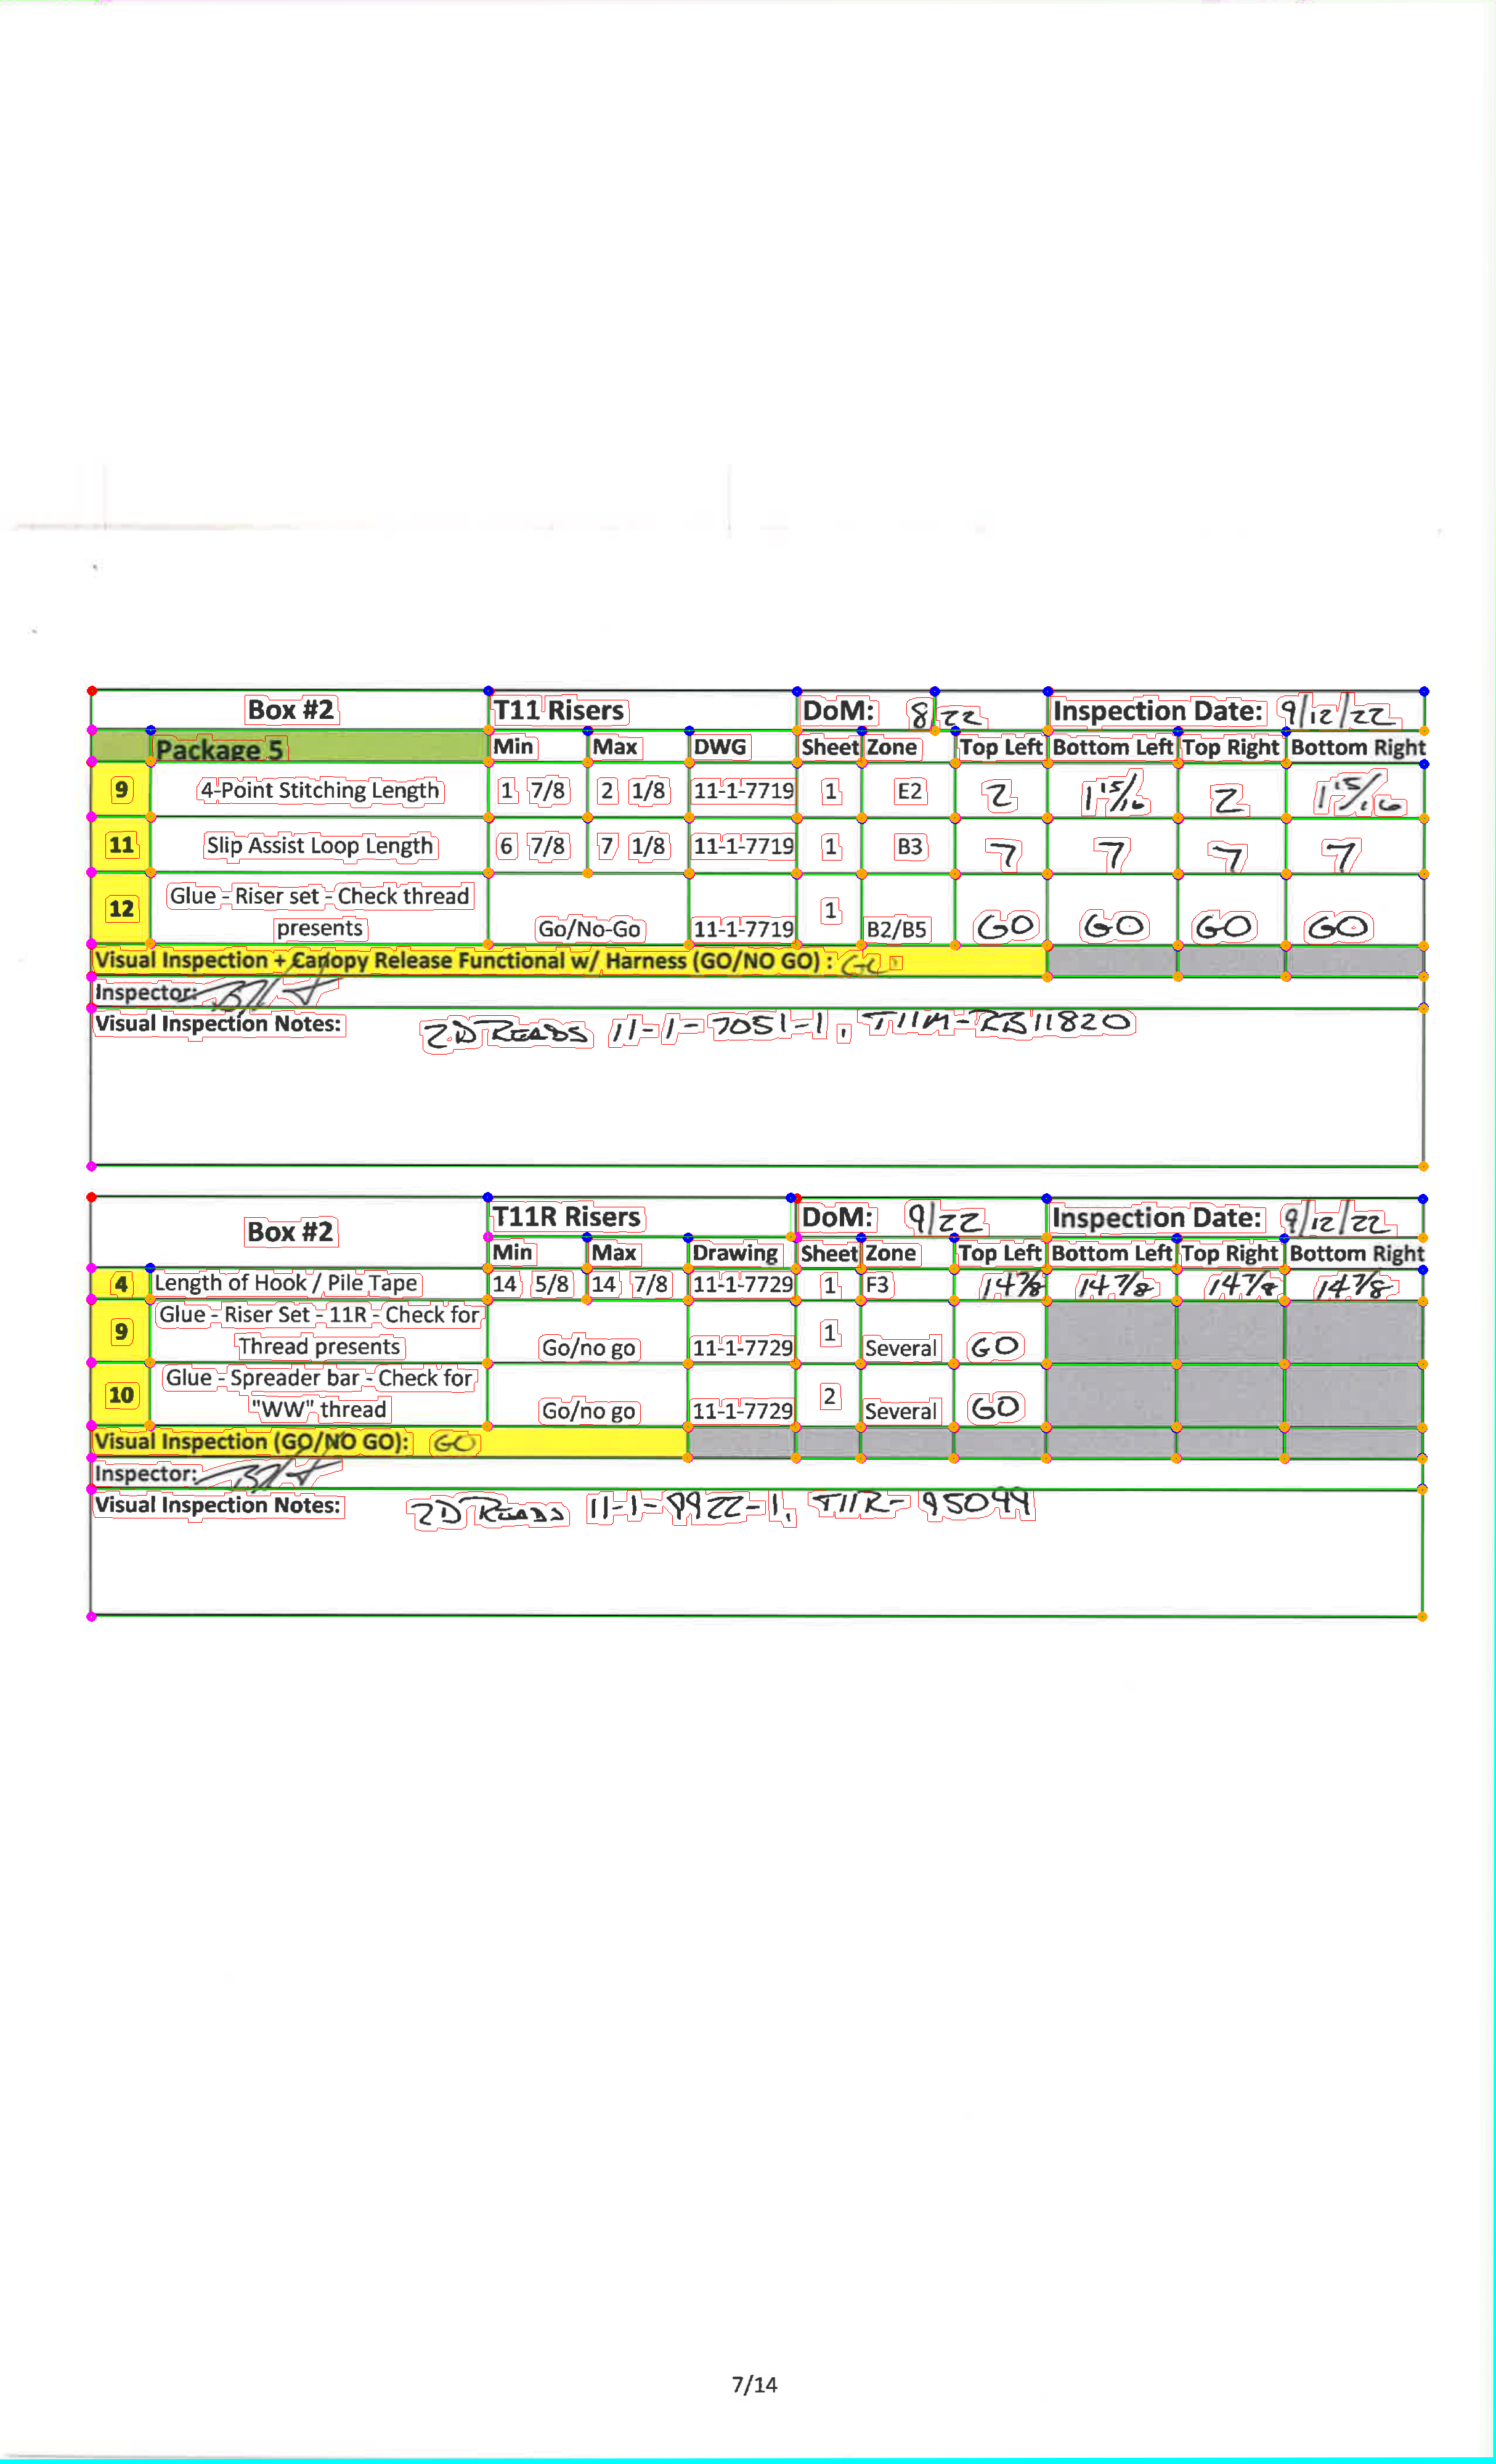 Box #2 T11 Risers DoM: 8/22 Inspection Date: 9/12/22
Package 5 Min Max DWG Sheet Zone Top Left Bottom Left Top Right Bottom Right
9 4-Point Stitching Length 1 7/8 2 1/8 11-1-7719 1 E2 2 1 15/16 2 1 15/16
11 Slip Assist Loop Length 6 7/8 7 1/8 11-1-7719 1 B3 7 7 7 7
12 Glue - Riser set - Check thread
presents Go/No-Go 11-1-7719 1 B2/B5 GO GO GO GO
Visual Inspection + Canopy Release Functional w/ Harness (GO/NO GO) : GO
Inspector:
Visual Inspection Notes: 2D READS 11-1-7051-1, T11M-RB11820
Box #2 T11R Risers DoM: 9/22 Inspection Date: 9/12/22
Min Max Drawing Sheet Zone Top Left Bottom Left Top Right Bottom Right
4 Length of Hook / Pile Tape 14 5/8 14 7/8 11-1-7729 1 F3 14 7/8 14 7/8 14 7/8 14 7/8
9 Glue - Riser Set - 11R - Check for
Thread presents Go/no go 11-1-7729 1 Several GO
10 Glue - Spreader bar - Check for
"WW" thread Go/no go 11-1-7729 2 Several GO
Visual Inspection (GO/NO GO): GO
Inspector:
Visual Inspection Notes: 2D READS 11-1-9922-1, T11R-95099
7/14